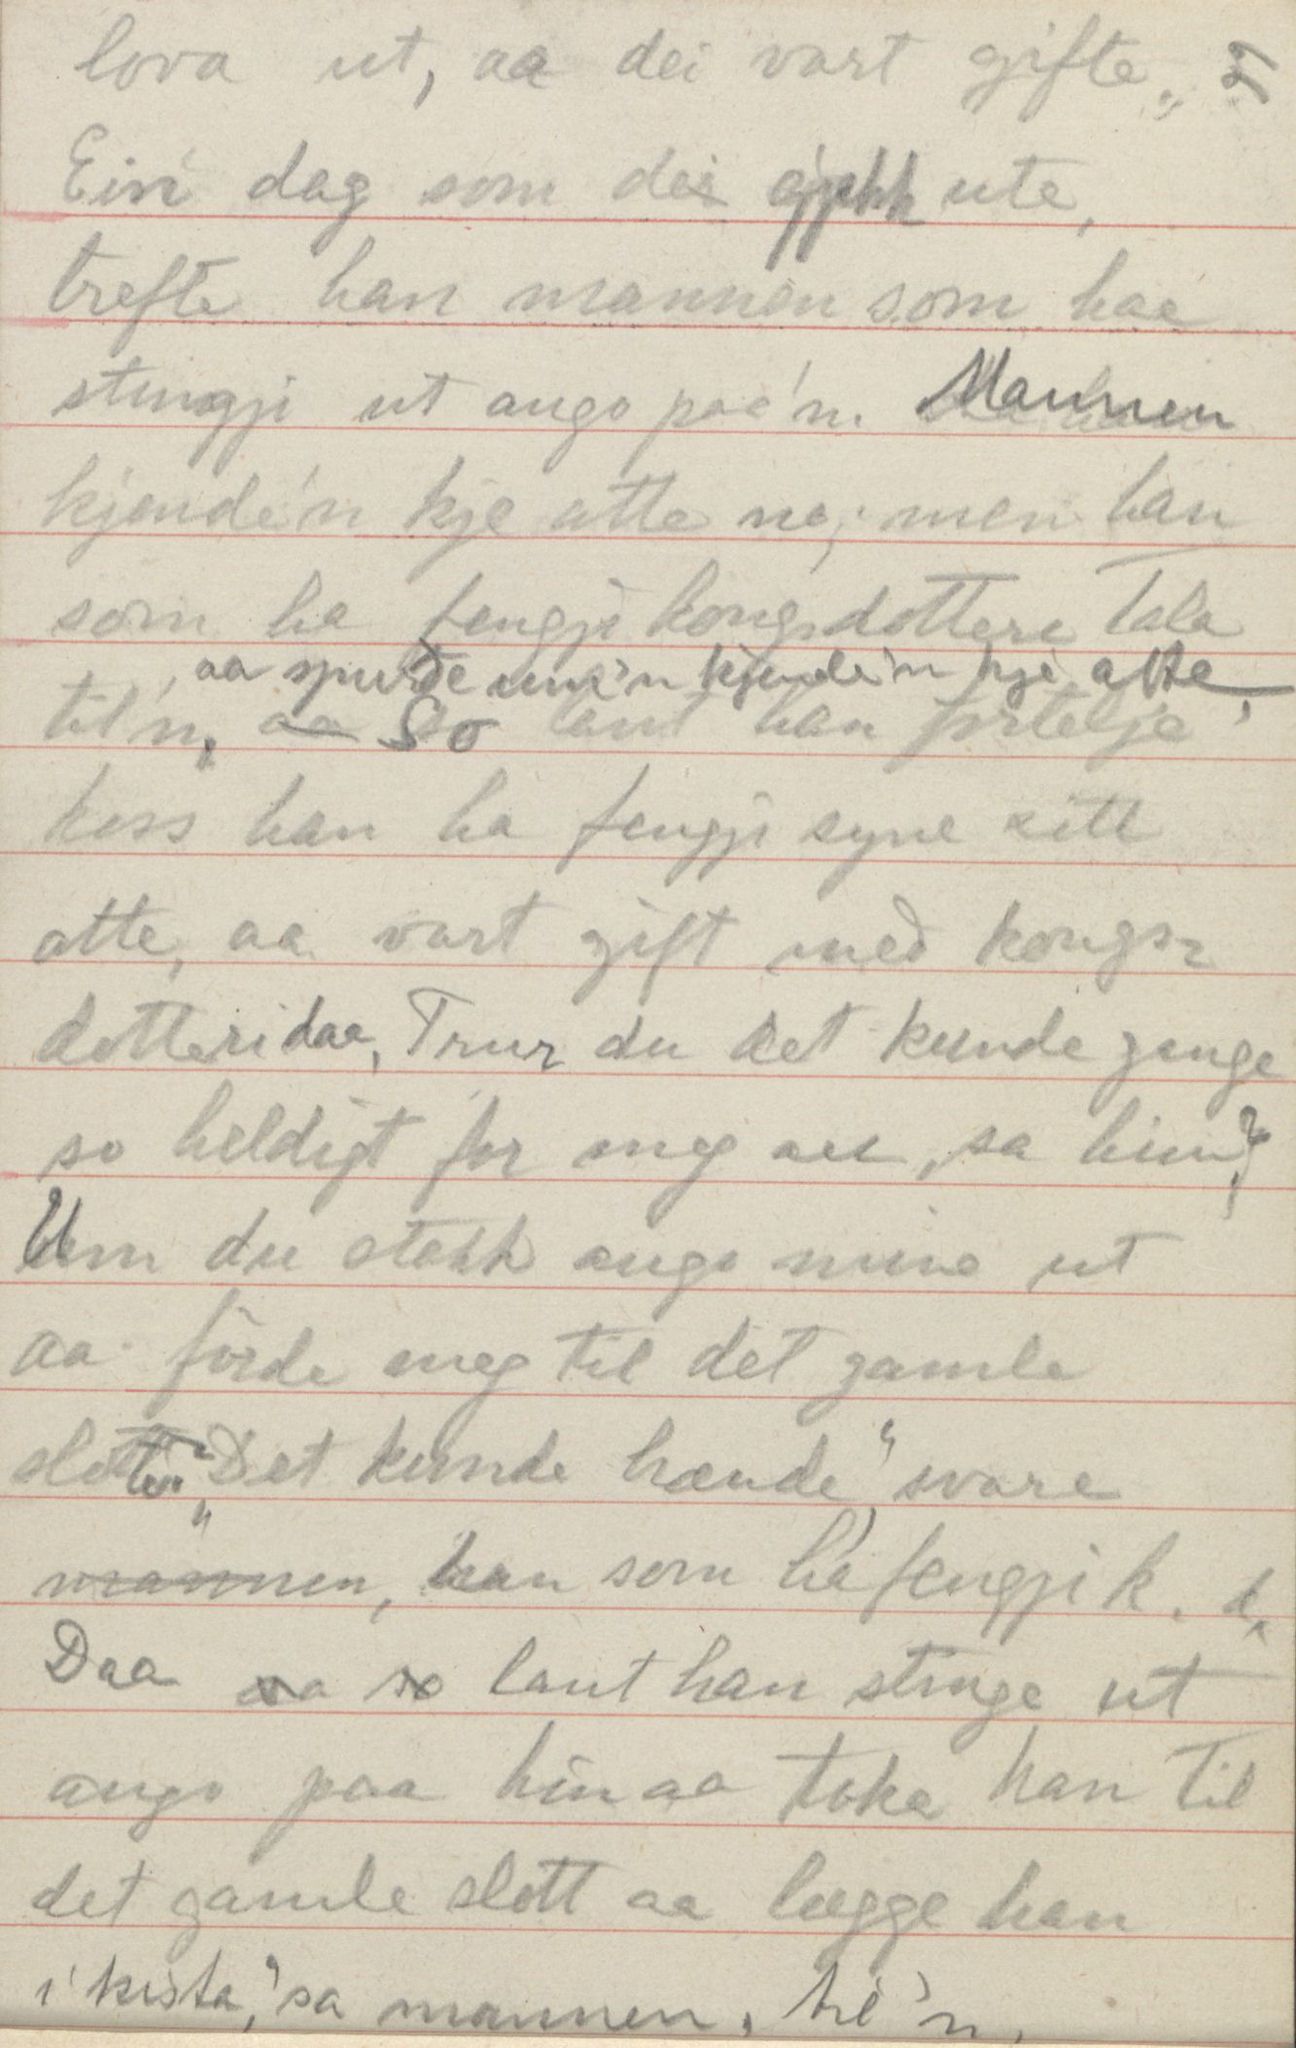 lova ut, aa dei vart gifte.
Ein dag som dei gjekk ute,
trefte han mannen som hae
stungji ut augo paa'n. Mannen
kjende'n kje atte no; men han
som ha fengji kongsdottere tala
aa spurde um'n kjende'n kje atte,
til'n, aa So laut han fortelja
koss han ha fengji syne sitt
atte, aa vart gift med kongs-
dotteri daa, Trur du det kunde gange
so heldigt for meg au, sa hin?
Um du stakk augo mine ut
aa förde meg til det gamle
slottet" "Det kunde hænde" svare
mannen, han som ha fengji k. d.
Daa aa so laut han stinge ut
augo paa hin aa taka han til
det gamle slott aa lægge han
i kista," sa mannen, til'n.